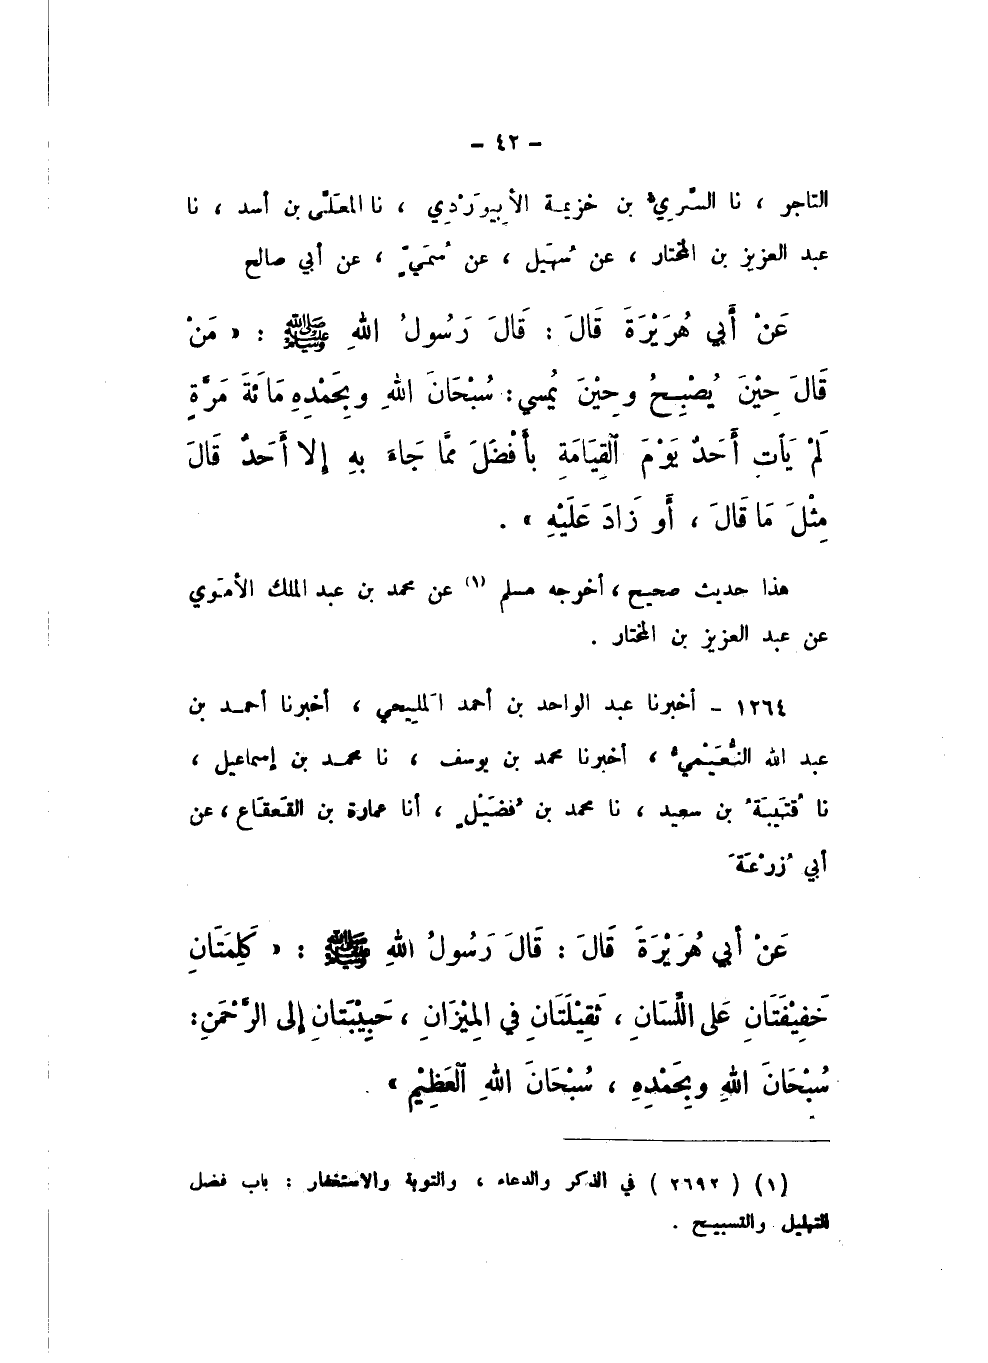 - ٤٢ -
التاجر ، نا السَّري بن خزيمة الأبِيوَرْدِي ، نا المعَلَّى بن أسد ، نا
عبد العزيز بن المختار ، عن سُهَيل ، عن سُمَيٍّ ، عن أبي صالح
عَنْ أَبي هُرَيْرَةَ قَالَ : قَالَ رَسُولُ اللهِ ﷺ : « مَنْ
قَالَ حِيْنَ يُصْبِحُ وحِيْنَ يُمسي : سُبْحَانَ اللهِ وبِحَمْدِهِ مَائَةَ مَرَّةٍ
لَمْ يَأتِ أَحَدٌ يَوْمَ القِيَامَةِ بأَفْضَلَ ممَّا جَاءَ بهِ إلا أَحَدٌ قَالَ
مِثْلَ مَا قَالَ ، أَو زَادَ عَلَيْهِ » .
هذا حديث صحيح ، أخرجه مسلم (١) عن محمد بن عبد الملك الأموي
عن عبد العزيز بن المختار .
١٢٦٤ - أخبرنا عبد الواحد بن أحمد المَليحي ، أخبرنا أحمد بن
عبد الله النُّعَيْمي ، أخبرنا محمد بن يوسف ، نا محمد بن إسماعيل ،
نا قُتَيبَةُ بن سعيد ، نا محمد بن فُضَيْلٍ ، أنا عمارة بن القَعقَاع ، عن
أبي زُرْعَةَ
عَنْ أَبي هُرَيْرَةَ قَالَ : قَالَ رَسُولُ اللهِ ﷺ : « كَلِمَتَانِ
خَفِيْفَتَانِ عَلى اللَّسَانِ ، ثَقِيْلَتَانِ في المِيْزَانِ ، حَبِيْبَتانِ إلى الرَّحْمَنِ :
سُبْحَانَ اللهِ وبِحَمْدِهِ ، سُبْحَانَ اللهِ العَظِيْمِ » .
(١) ( ٢٦٩٢ ) في الذكر والدعاء ، والتوبة والاستغفار : باب فضل
التهليل والتسبيح .